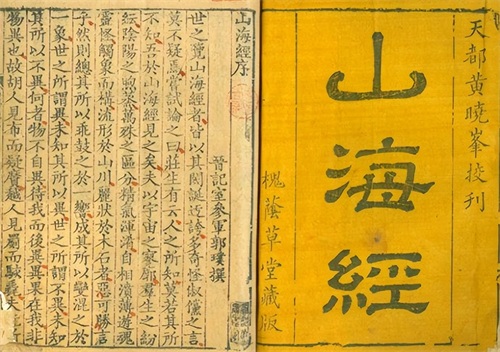 天都黄曉峯挍刊
山海經
槐蔭草堂藏版
山海經序
晉記室參軍郭璞撰
世之覽山海經者皆以其閎誕迂誇多奇怪俶儻之言
莫不疑焉嘗試論之曰莊生有云人之所知莫若其所
不知吾於山海經見之矣夫以宇宙之寥廓羣生之紛
紜陰陽之煦蒸萬殊之區分精氣渾淆自相濆薄遊魂
靈怪觸象而構流形於山川麗狀於木石者惡可勝言
乎然則總其所以乖鼓之於一響成其所以變混之於
一象世之所謂異未知其所以異世之所謂不異未知
其所以不異何者物不自異待我而後異異果在我非
物異也故胡人見布而疑黂越人見罽而駭毳夫